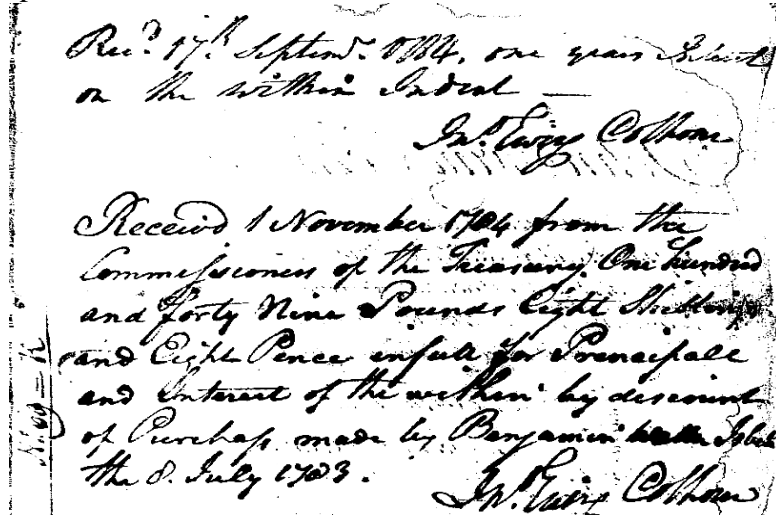 Rec.d 17.th Septem.r 1784, one years Interest
on the within Indent —
Jn.o Ewing Colhoun
Received 1 November 1784 from the
Commissioners of the Treasury, One hundred
and forty Nine Pounds Eight Shillings
and Eight Pence in full for Principall
and Interest of the within by discount
of Purchass made by Benjamin
the 8. July 1783.
Jn.o Ewing Colhoun